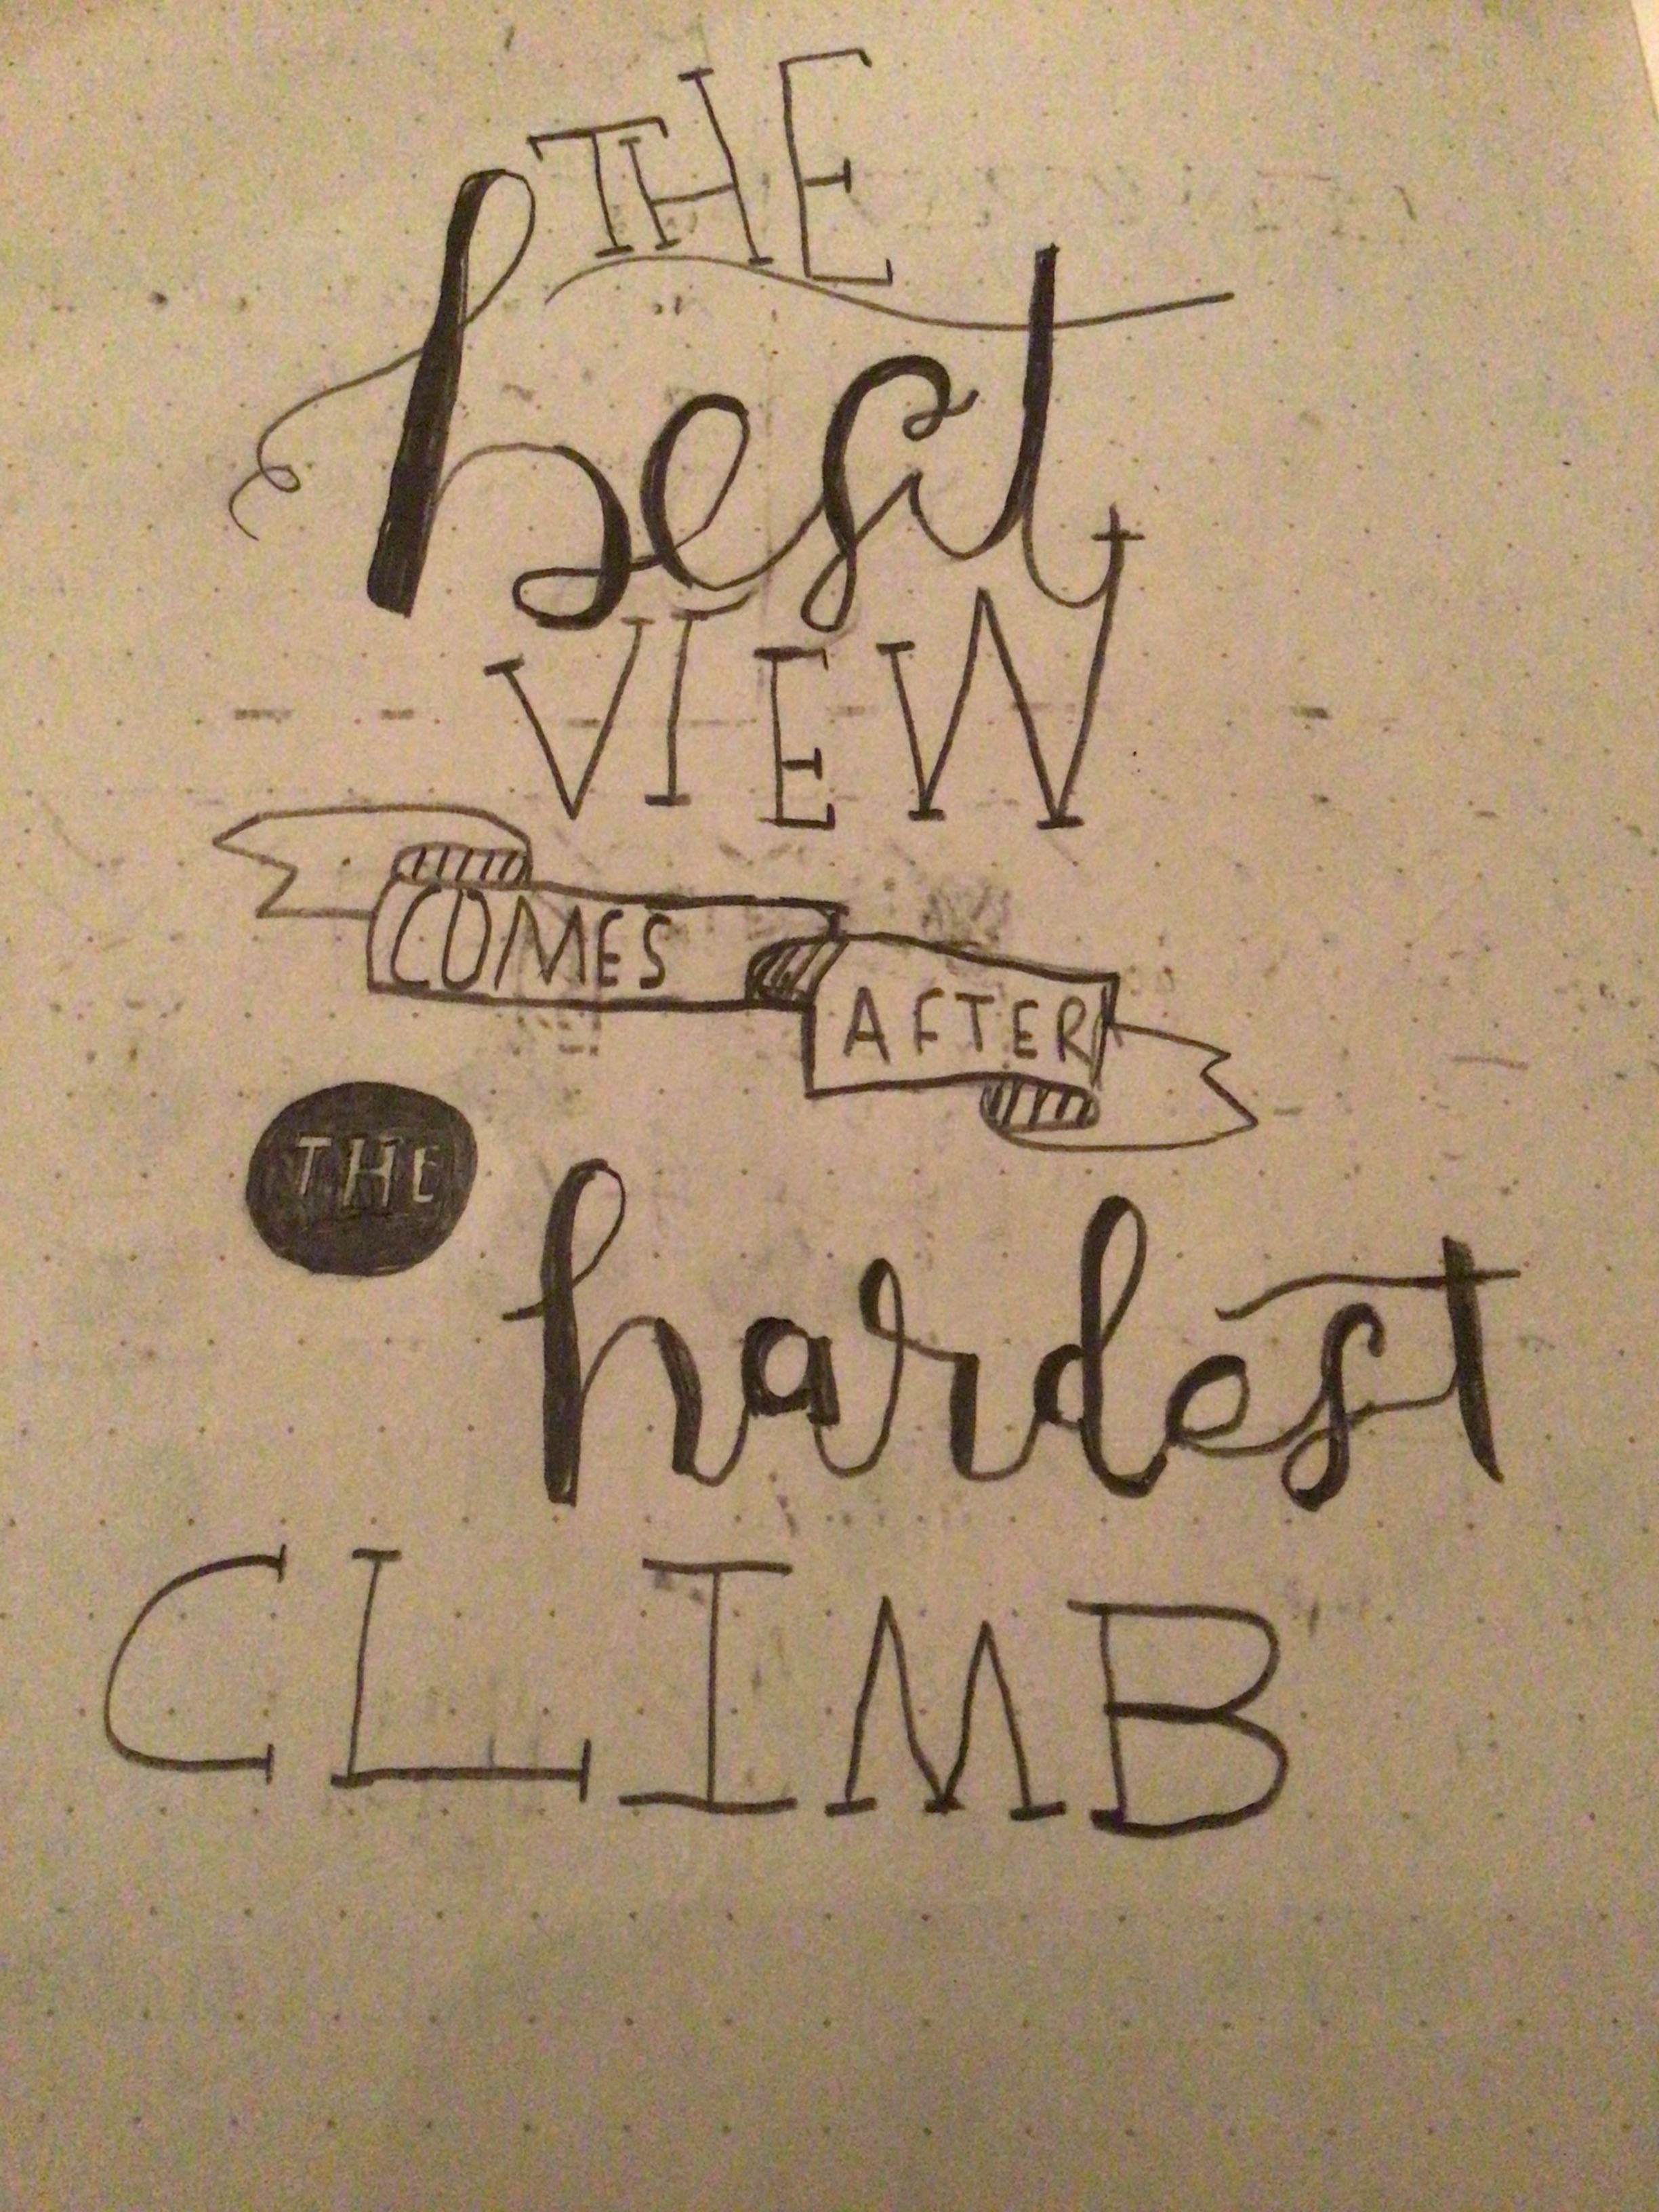 THE
best
VIEW
COMES
AFTER
THE
hardest
CLIMB